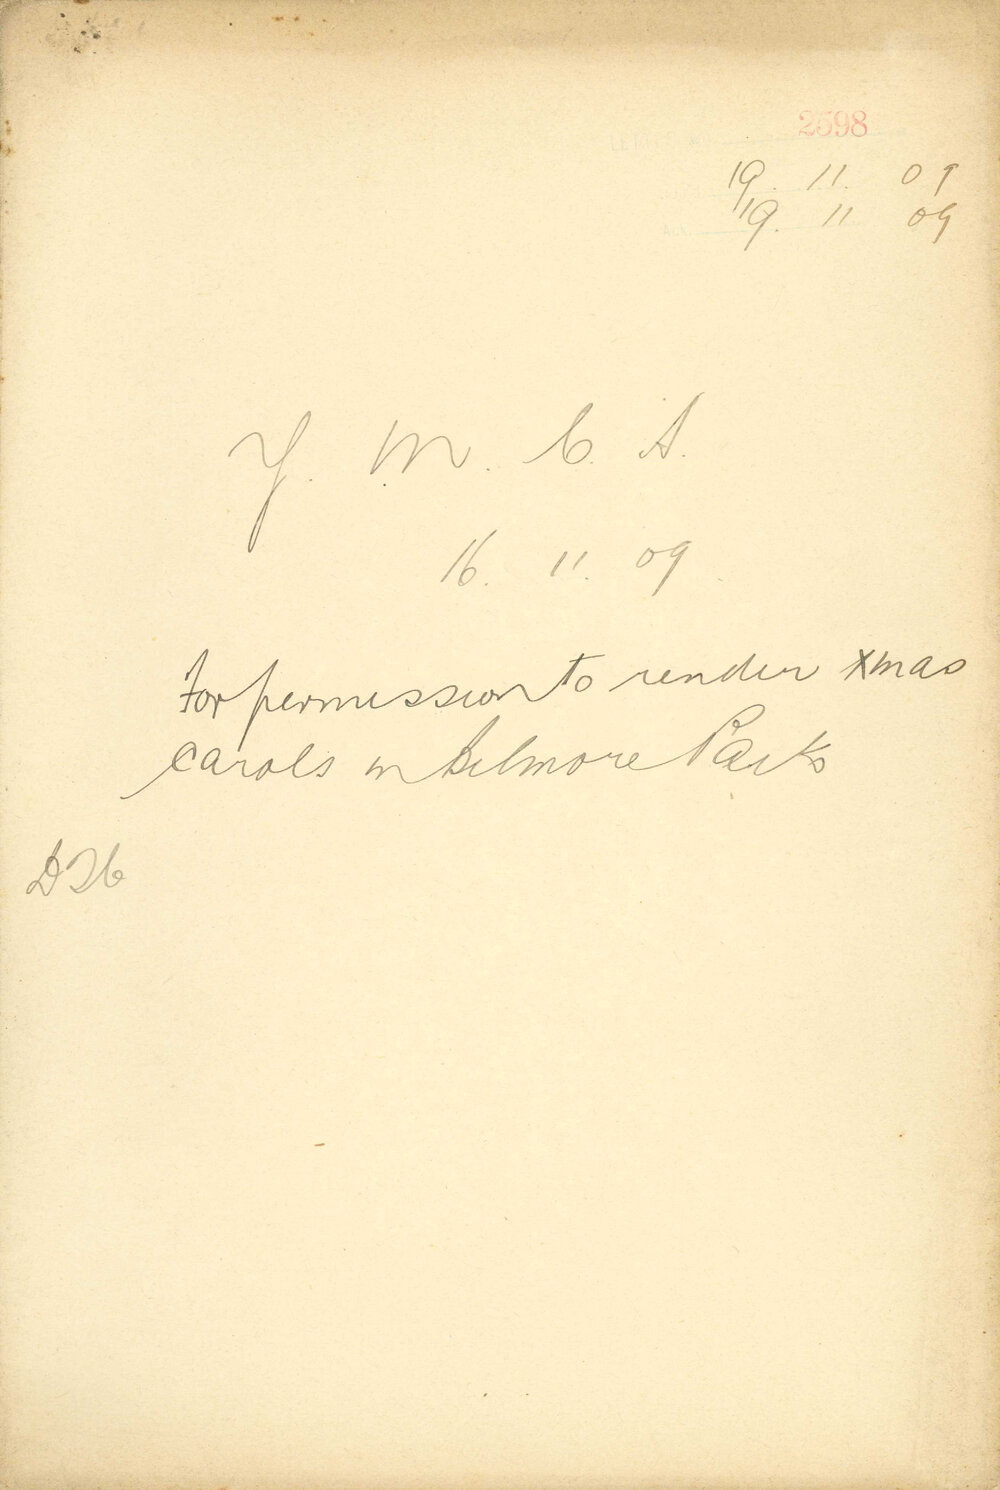 2598
19. 11. 09
19. 11 09
Y. M. C. A.
16. 11. 09
For permission to render Xmas
carols in Belmore Park